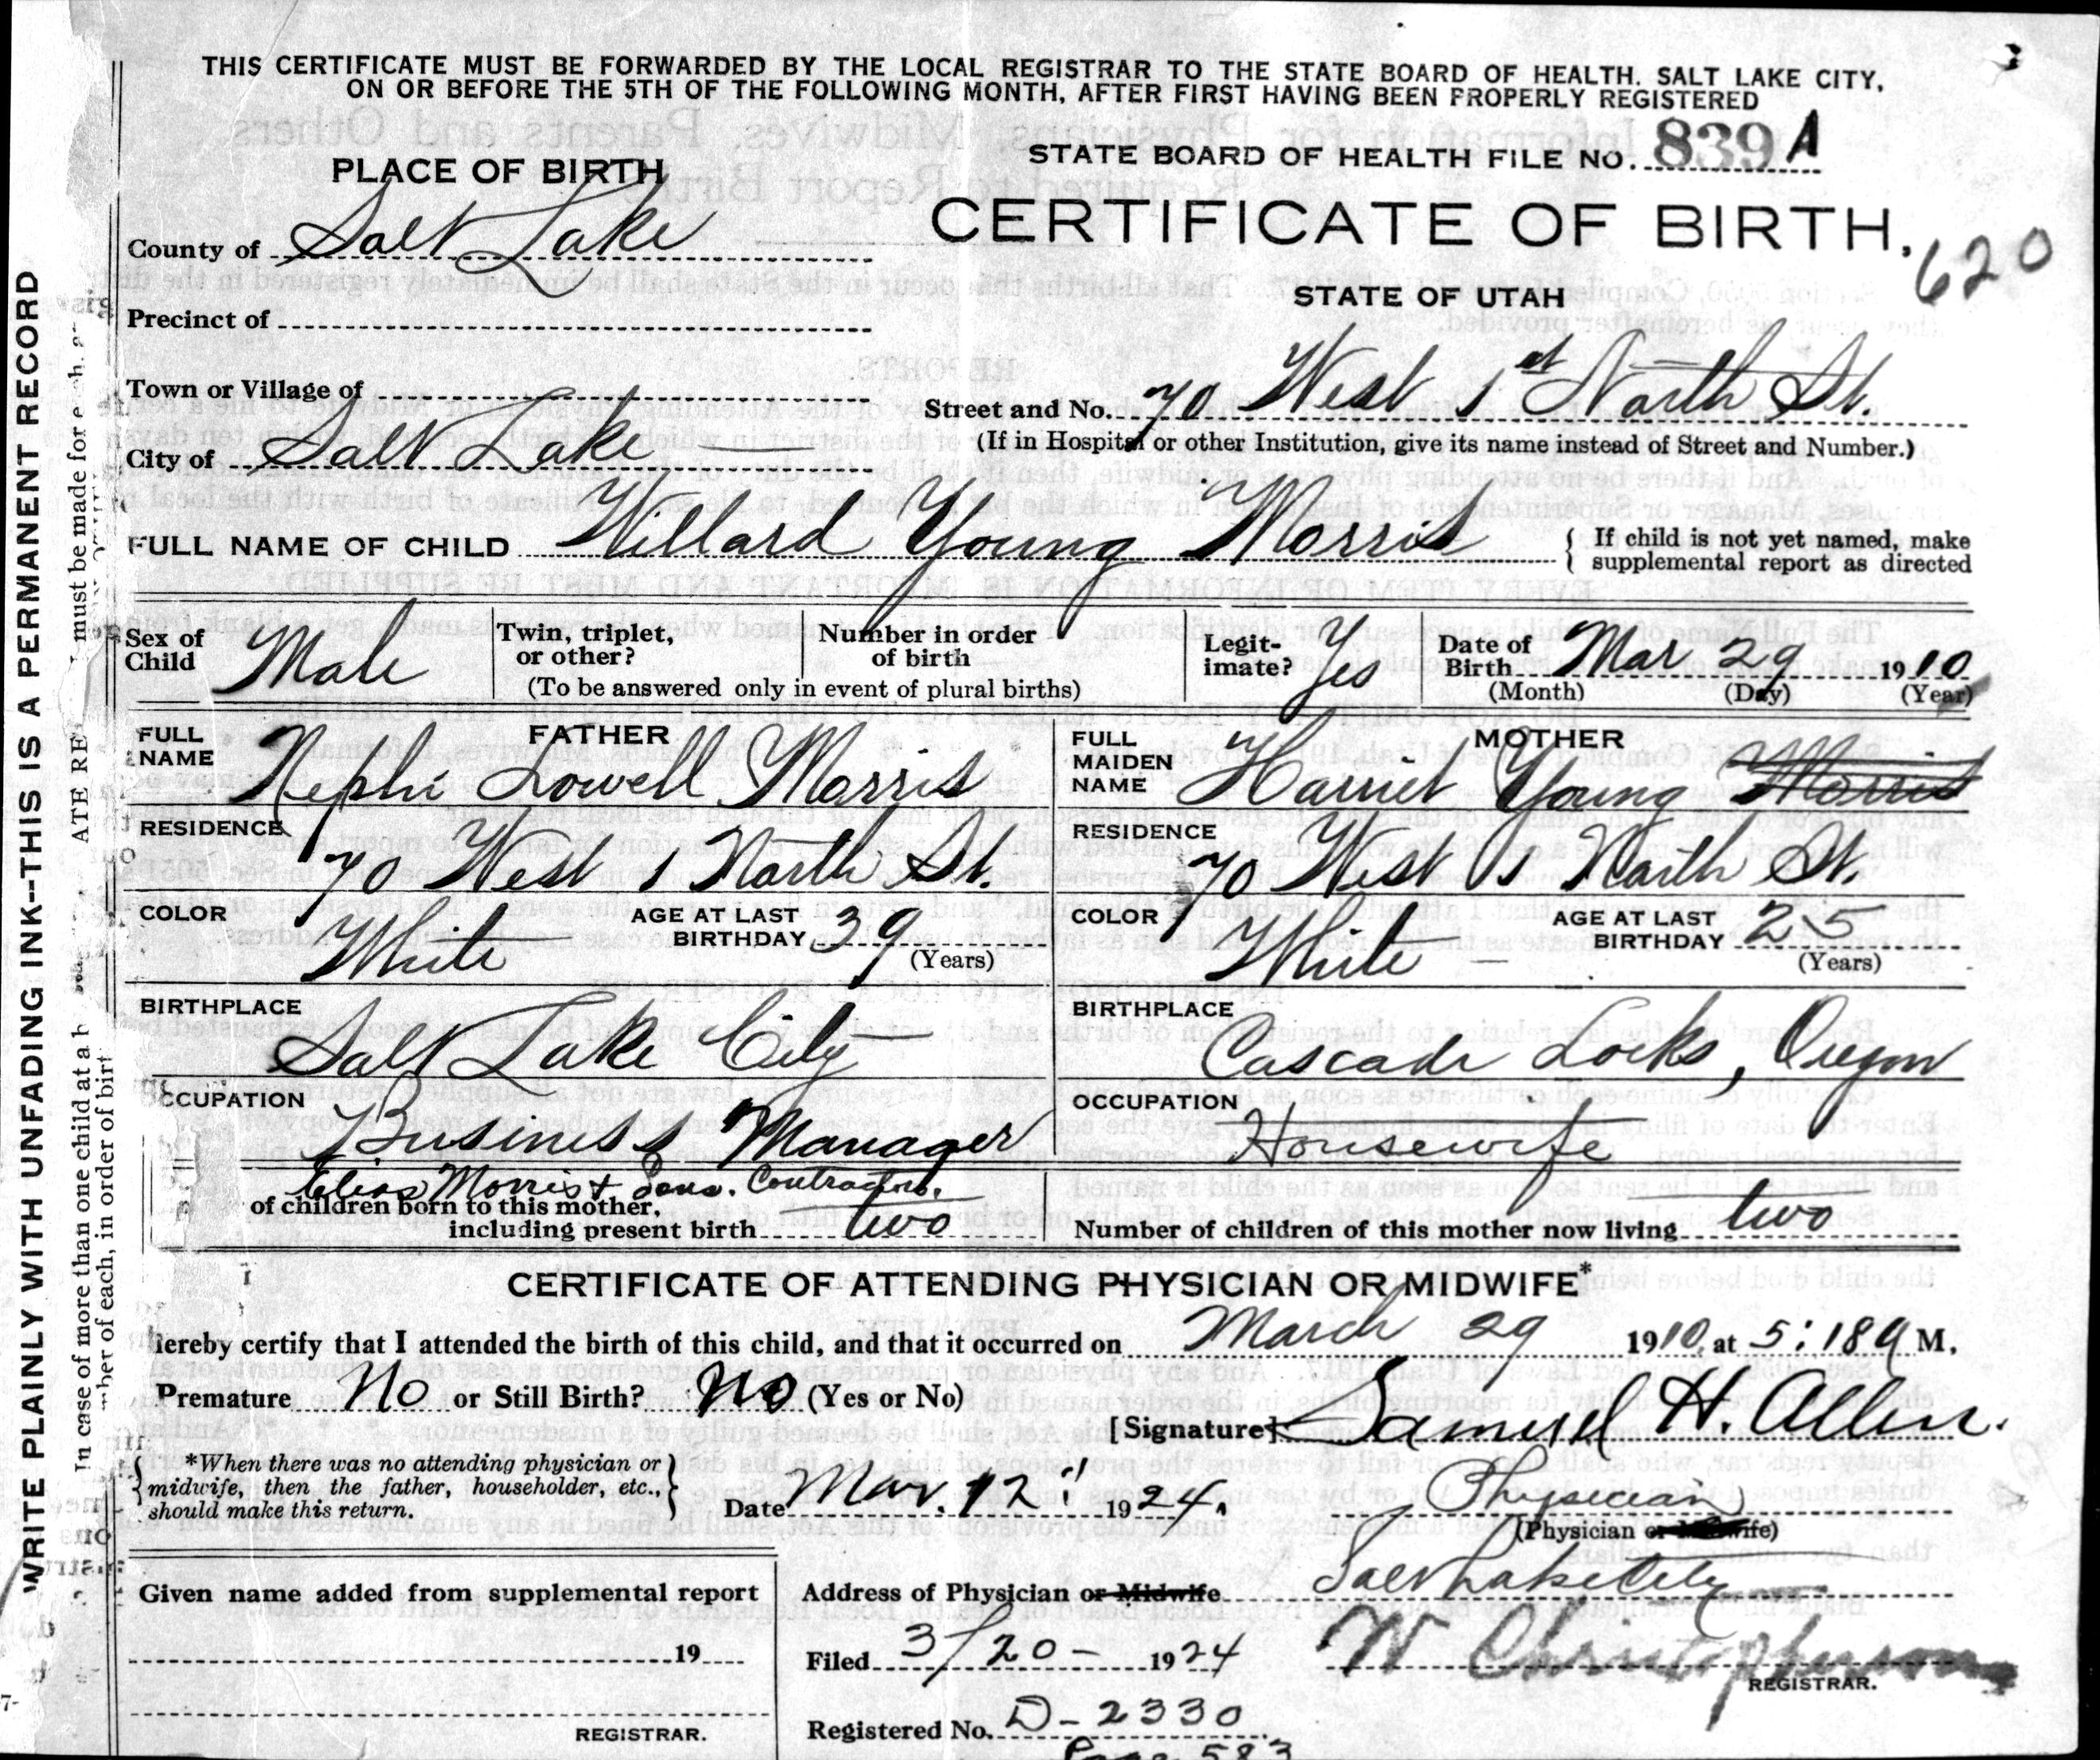 THIS CERTIFICATE MUST BE FORWARDED BY THE LOCAL REGISTRAR TO THE STATE BOARD OF HEALTH. SALT LAKE CITY,
ON OR BEFORE THE 5TH OF THE FOLLOWING MONTH, AFTER FIRST HAVING BEEN PROPERLY REGISTERED
STATE BOARD OF HEALTH FILE NO. 839 A
PLACE OF BIRTH
CERTIFICATE OF BIRTH.
620
County of Salt Lake
STATE OF UTAH
Precinct of
Town or Village of
Street and No. 70 West 1st North St.
(If in Hospital or other Institution, give its name instead of Street and Number.)
City of Salt Lake
FULL NAME OF CHILD Willard Young Morris
If child is not yet named, make
supplemental report as directed
Sex of Child Male
Twin, triplet, or other?
Number in order of birth
(To be answered only in event of plural births)
Legit-imate? Yes
Date of Birth Mar 29 1910
(Month) (Day) (Year)
FATHER
FULL NAME Nephi Lowell Morris
RESIDENCE 70 West 1 North St.
COLOR White AGE AT LAST BIRTHDAY 39 (Years)
BIRTHPLACE
Salt Lake City
OCCUPATION
Business Manager
Elias Morris & Sons. Contractors.
MOTHER
FULL MAIDEN NAME Harriet Young Morris
RESIDENCE 70 West 1 North St.
COLOR White AGE AT LAST BIRTHDAY 25 (Years)
BIRTHPLACE
Cascade Locks, Oregon
OCCUPATION
Housewife
of children born to this mother,
including present birth two
Number of children of this mother now living two
CERTIFICATE OF ATTENDING PHYSICIAN OR MIDWIFE*
hereby certify that I attended the birth of this child, and that it occurred on March 29 1910, at 5:18 a M.
Premature No or Still Birth? No (Yes or No)
[Signature] Samuel H. Allen.
*When there was no attending physician or
midwife, then the father, householder, etc.,
should make this return.
Date Mar. 12" 1924.
Physician
(Physician or Midwife)
Given name added from supplemental report
19
REGISTRAR.
Address of Physician or Midwife Salt Lake City
Filed 3/20- 1924
W Christopherson
REGISTRAR.
Registered No. D-2330
Page 583
WRITE PLAINLY WITH UNFADING INK--THIS IS A PERMANENT RECORD
In case of more than one child at a b
ATE RE
must be made for
ber of each, in order of birt